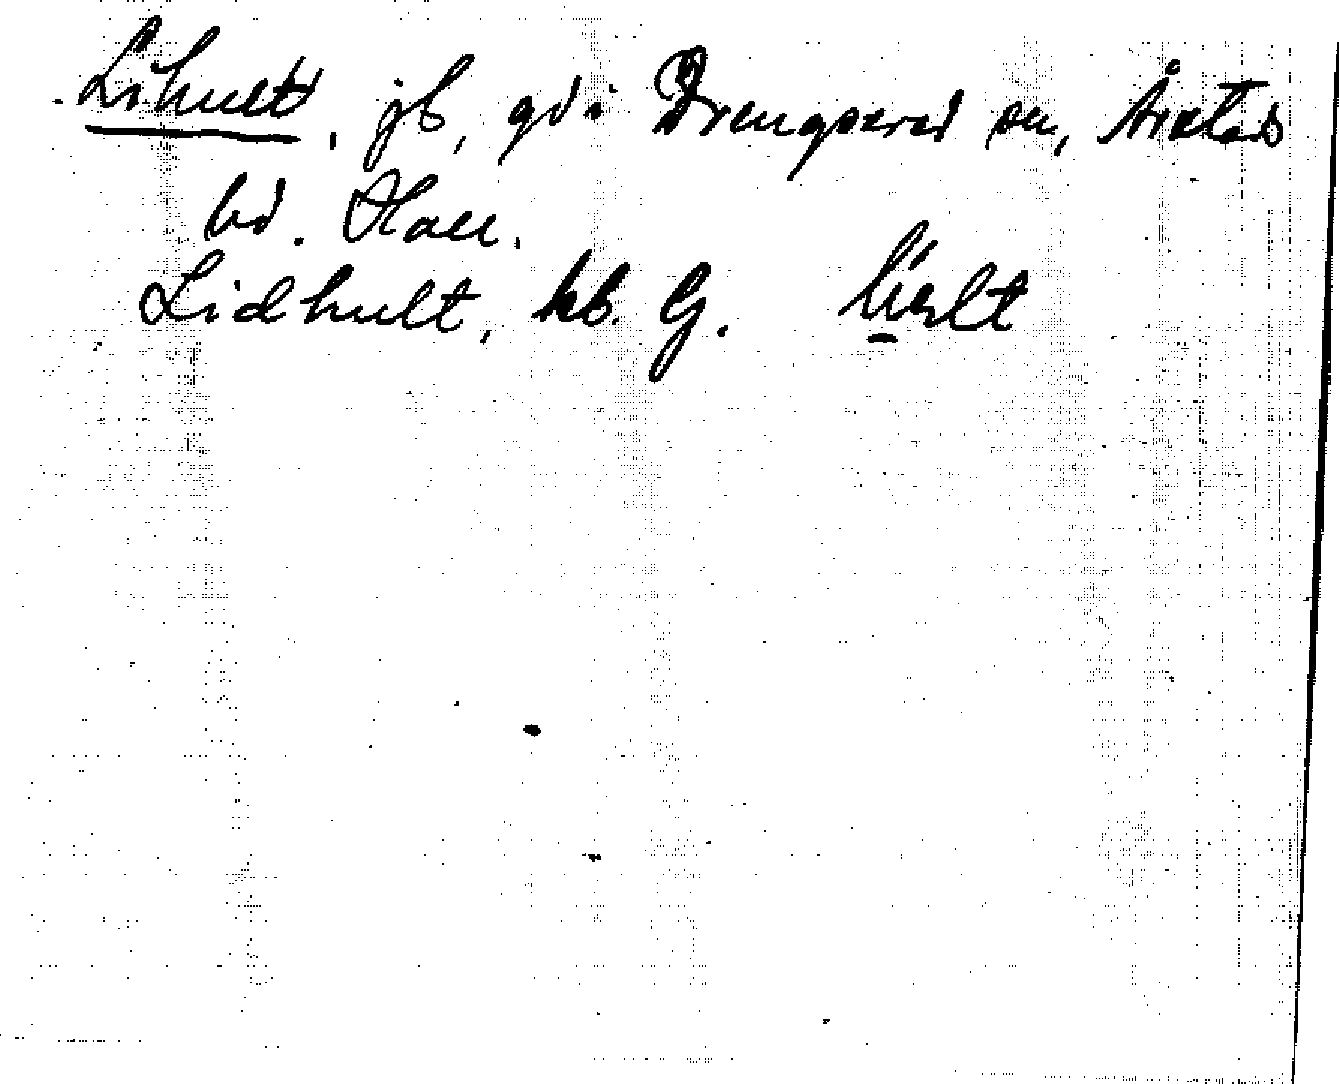 Lihult, jb, gd i Drengsered sn, Årstads
hd. Hall.
Lidhult, kb. G.